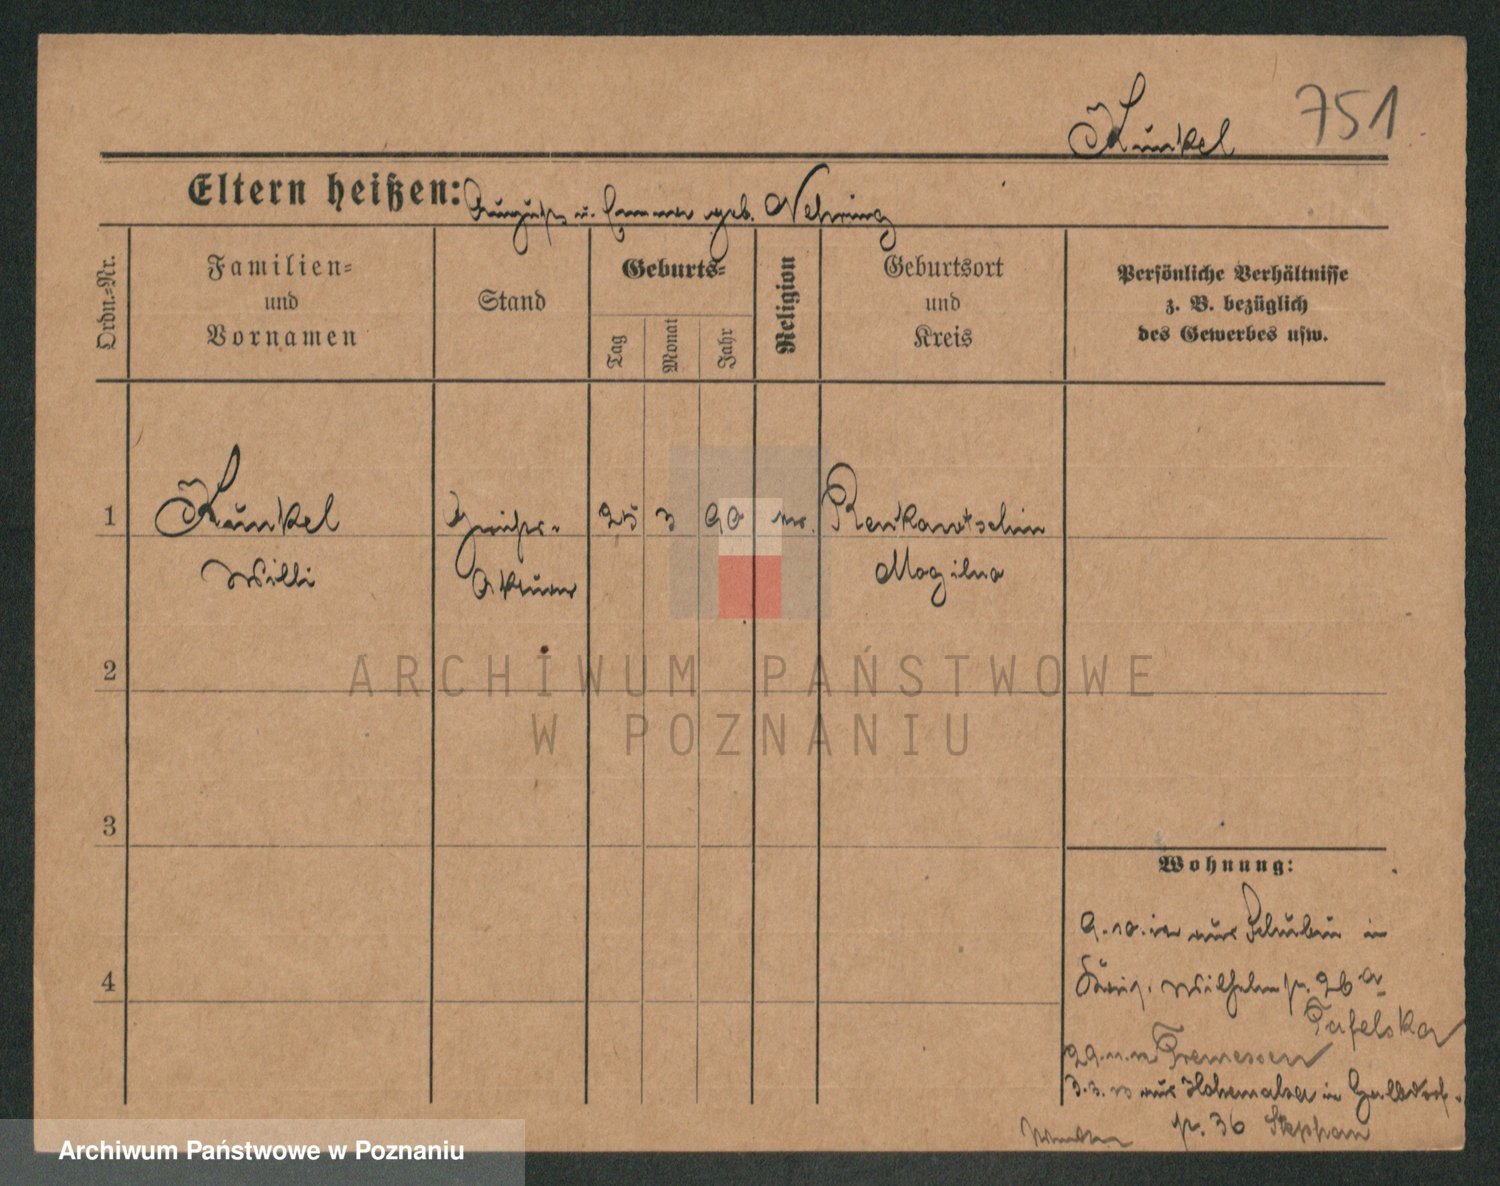 Kunkel 751
Eltern heißen: August u. Emma geb. Nehring
Ordn.=Nr.
Familien=
und
Vornamen
Stand
Geburts=
Tag
Monat
Jahr
Religion
Geburtsort
und
Kreis
Persönliche Verhältnisse
z. B. bezüglich
des Gewerbes usw.
1 Kunkel 25 3 90 ev.
Willi
Mogilno
2
3
4
Wohnung:
9.10.12 aus Schubin in
König. Wilhelmstr. 26 a
Tafelska
29.11.12 Tremessen
3.3.13 aus Hohensalza in
str. 36 Stephan
ARCHIWUM PAŃSTWOWE
W POZNANIU
Archiwum Państwowe w Poznaniu